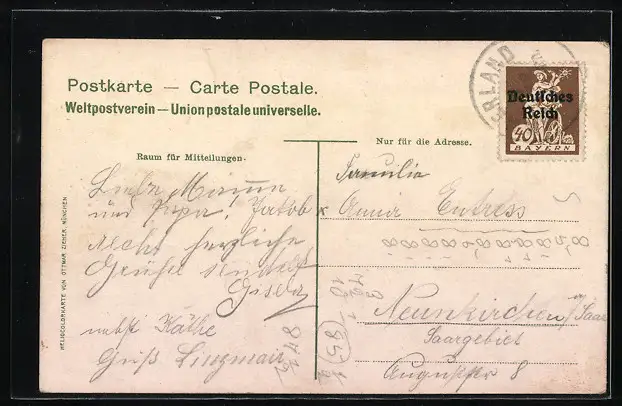 Postkarte — Carte Postale.
Weltpostverein — Union postale universelle.
Raum für Mitteilungen.
Nur für die Adresse.
RLAND
Deutsches
Reich
40
BAYERN
Liebe Mamma
und Papa, Jakob
recht herzliche
Grüße sendet
Gisela
nebst Käthe
Familie
Anna Entress
Neunkirchen a/ Saar
Saargebiet
8
HELIOCOLORKARTE VON OTTMAR ZIEHER, MÜNCHEN